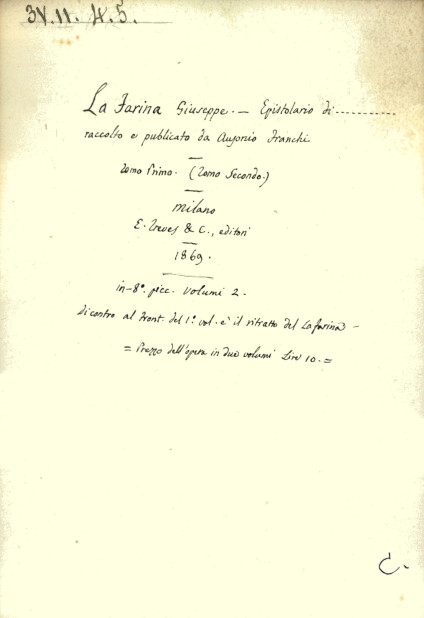 3V.11.4.5.
La Farina Giuseppe. — Epistolario di ----------
raccolto e pubblicato da Ausonio Franchi
Tomo Primo. (Tomo Secondo.)
Milano
E. Treves & C., editori
1869.
in-8°. picc. Volumi 2.
Di contro al Front. del 1°. vol. è il ritratto del La Farina —
= Prezzo dell'opera in due volumi Lire 10. =
C.